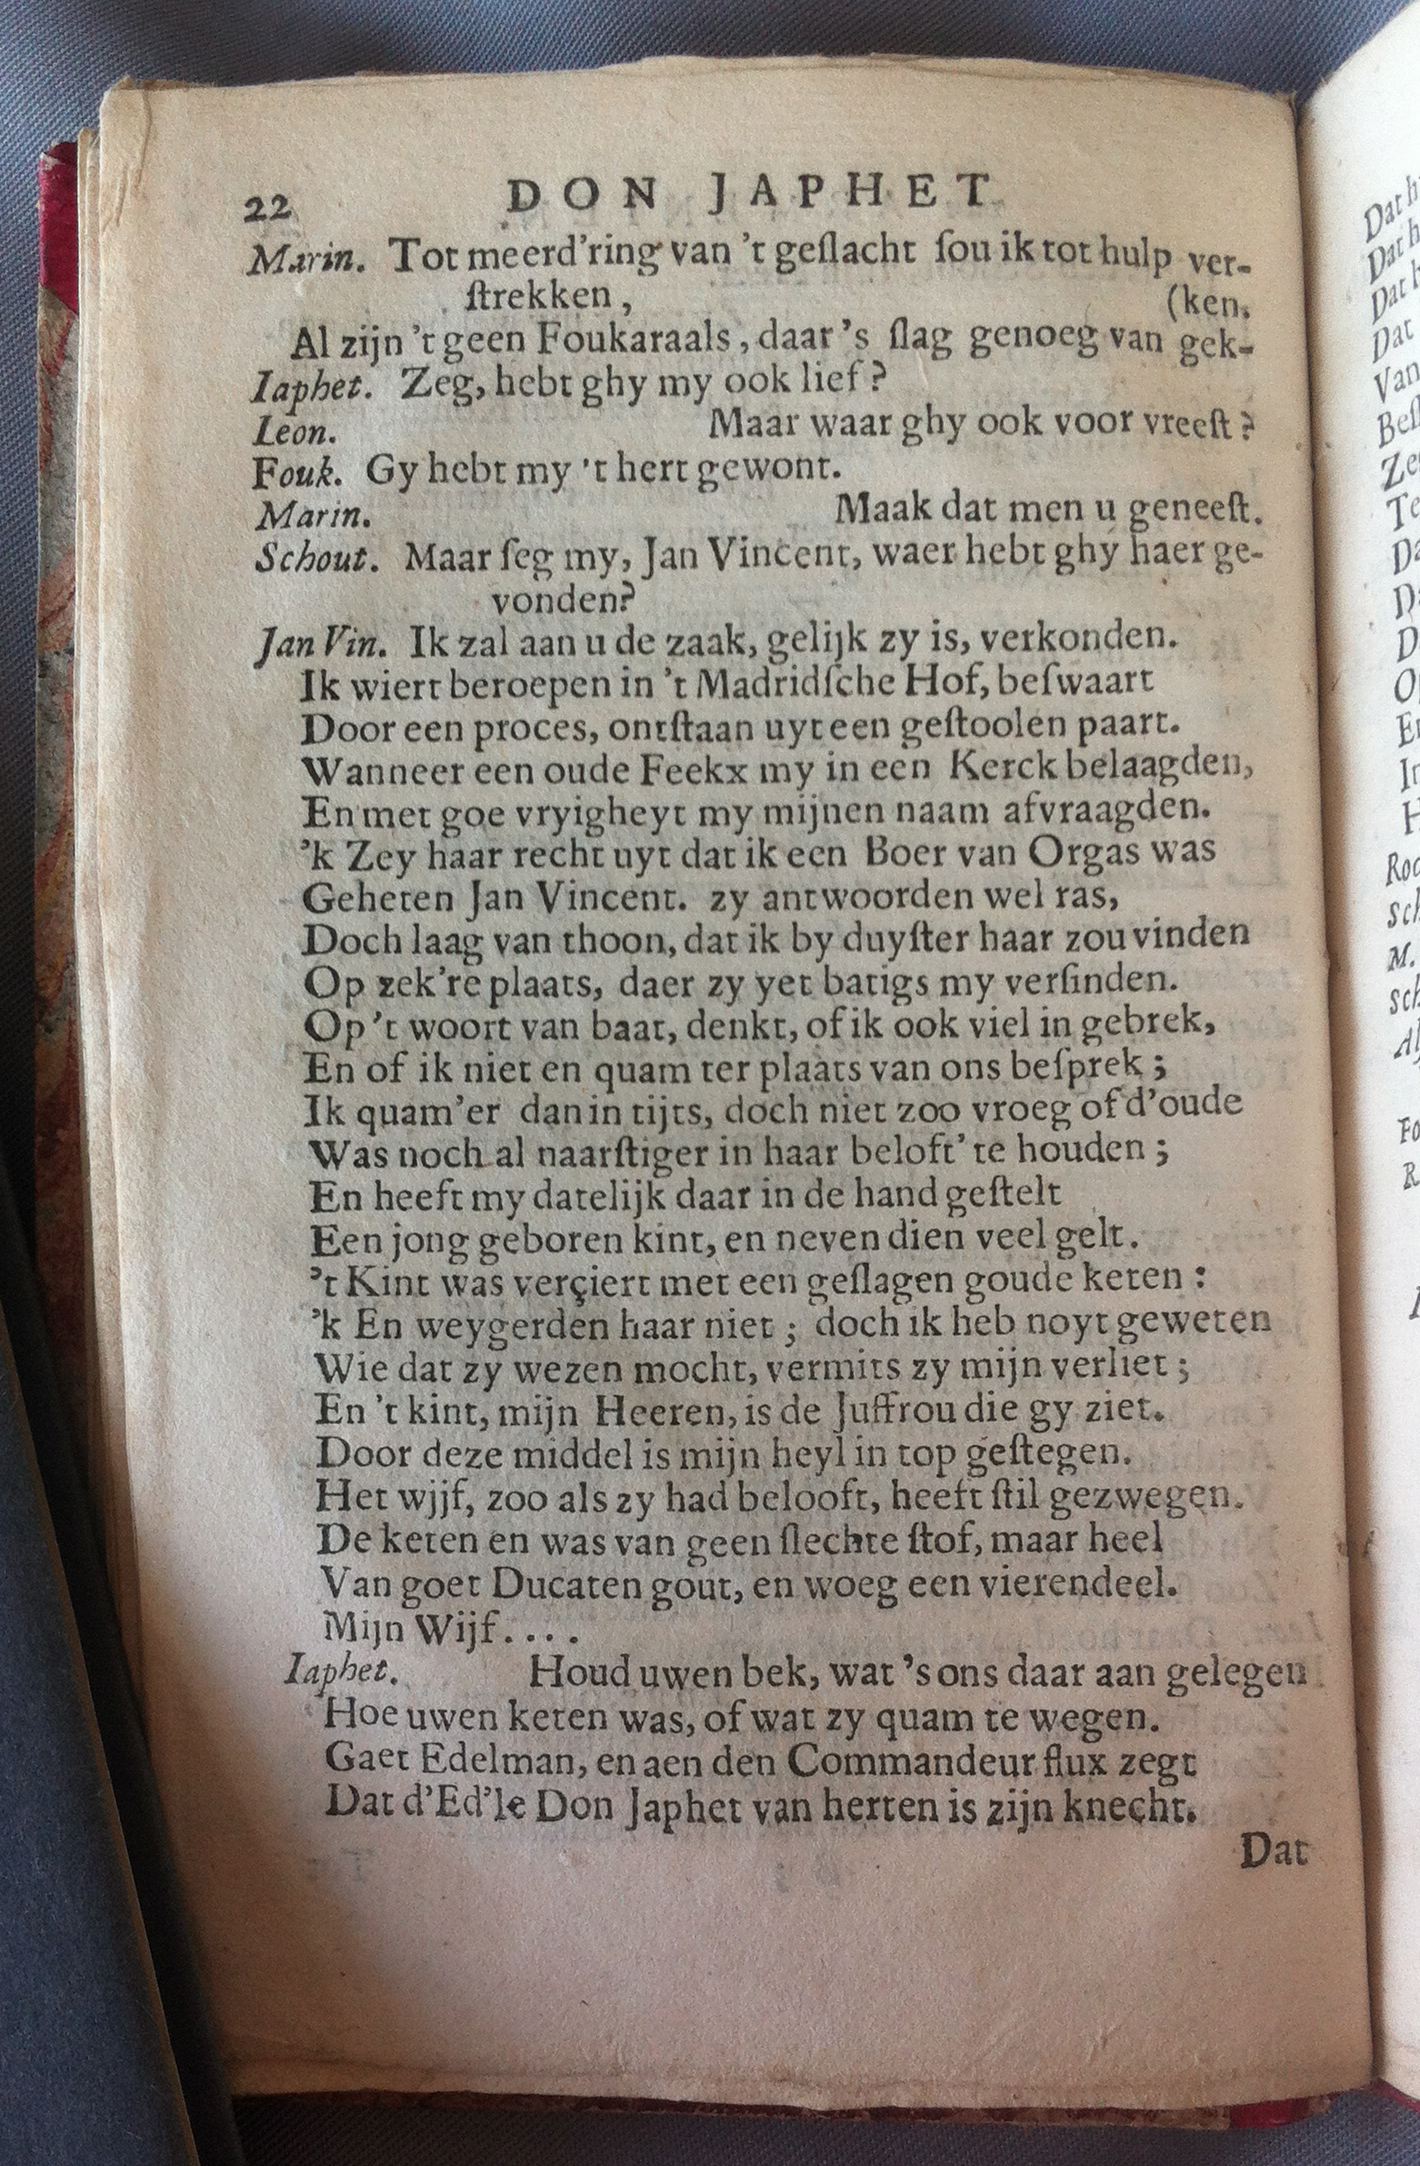 22 DON JAPHET
Marin. Tot meerd'ring van 't geſlacht ſou ik tot hulp ver-
ſtrekken, (ken.
Al zijn 't geen Foukaraals, daar's ſlag genoeg van gek-
Iaphet. Zeg, hebt ghy my ook lief?
Leon. Maar waar ghy ook voor vreeſt?
Fouk. Gy hebt my 't hert gewont.
Marin. Maak dat men u geneeſt.
Schout. Maar ſeg my, Jan Vincent, waer hebt ghy haer ge-
vonden?
Jan Vin. Ik zal aan u de zaak, gelijk zy is, verkonden.
Ik wiert beroepen in 't Madridſche Hof, beſwaart
Door een proces, ontſtaan uyt een geſtoolen paart.
Wanneer een oude Feekx my in een Kerck belaagden,
En met goe vryigheyt my mijnen naam afvraagden.
'k Zey haar recht uyt dat ik een Boer van Orgas was
Geheten Jan Vincent. zy antwoorden wel ras,
Doch laag van thoon, dat ik by duyſter haar zou vinden
Op zek're plaats, daer zy yet batigs my verſinden.
Op 't woort van baat, denkt, of ik ook viel in gebrek,
En of ik niet en quam ter plaats van ons beſprek;
Ik quam'er dan in tijts, doch niet zoo vroeg of d'oude
Was noch al naarſtiger in haar beloft' te houden;
En heeft my datelijk daar in de hand geſtelt
Een jong geboren kint, en neven dien veel gelt.
't Kint was verçiert met een geſlagen goude keten:
'k En weygerden haar niet; doch ik heb noyt geweten
Wie dat zy wezen mocht, vermits zy mijn verliet;
En 't kint, mijn Heeren, is de Juffrou die gy ziet.
Door deze middel is mijn heyl in top geſtegen.
Het wijf, zoo als zy had belooft, heeft ſtil gezwegen.
De keten en was van geen ſlechte ſtof, maar heel
Van goet Ducaten gout, en woeg een vierendeel.
Mijn Wijf....
Iaphet. Houd uwen bek, wat 's ons daar aan gelegen
Hoe uwen keten was, of wat zy quam te wegen.
Gaet Edelman, en aen den Commandeur flux zegt
Dat d'Ed'le Don Japhet van herten is zijn knecht.
Dat